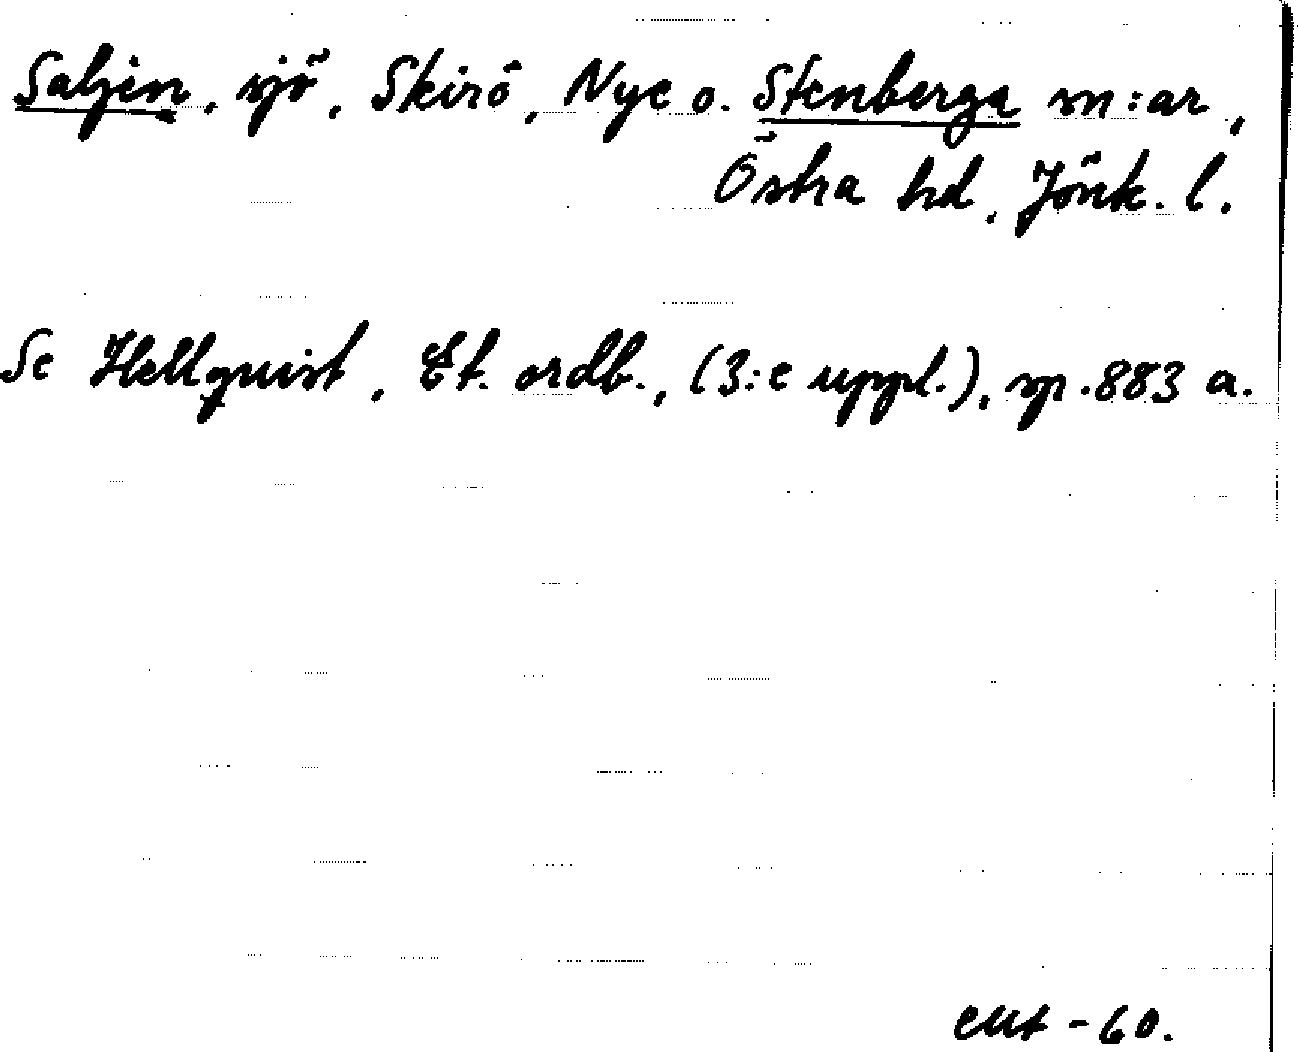 Saljen, sjö, Skirö, Nye o. Stenberga sn:ar,
Östra hd, Jönk. l.
Se Hellquist, Et. ordb., (3:e uppl.), sp. 883 a.
-60.